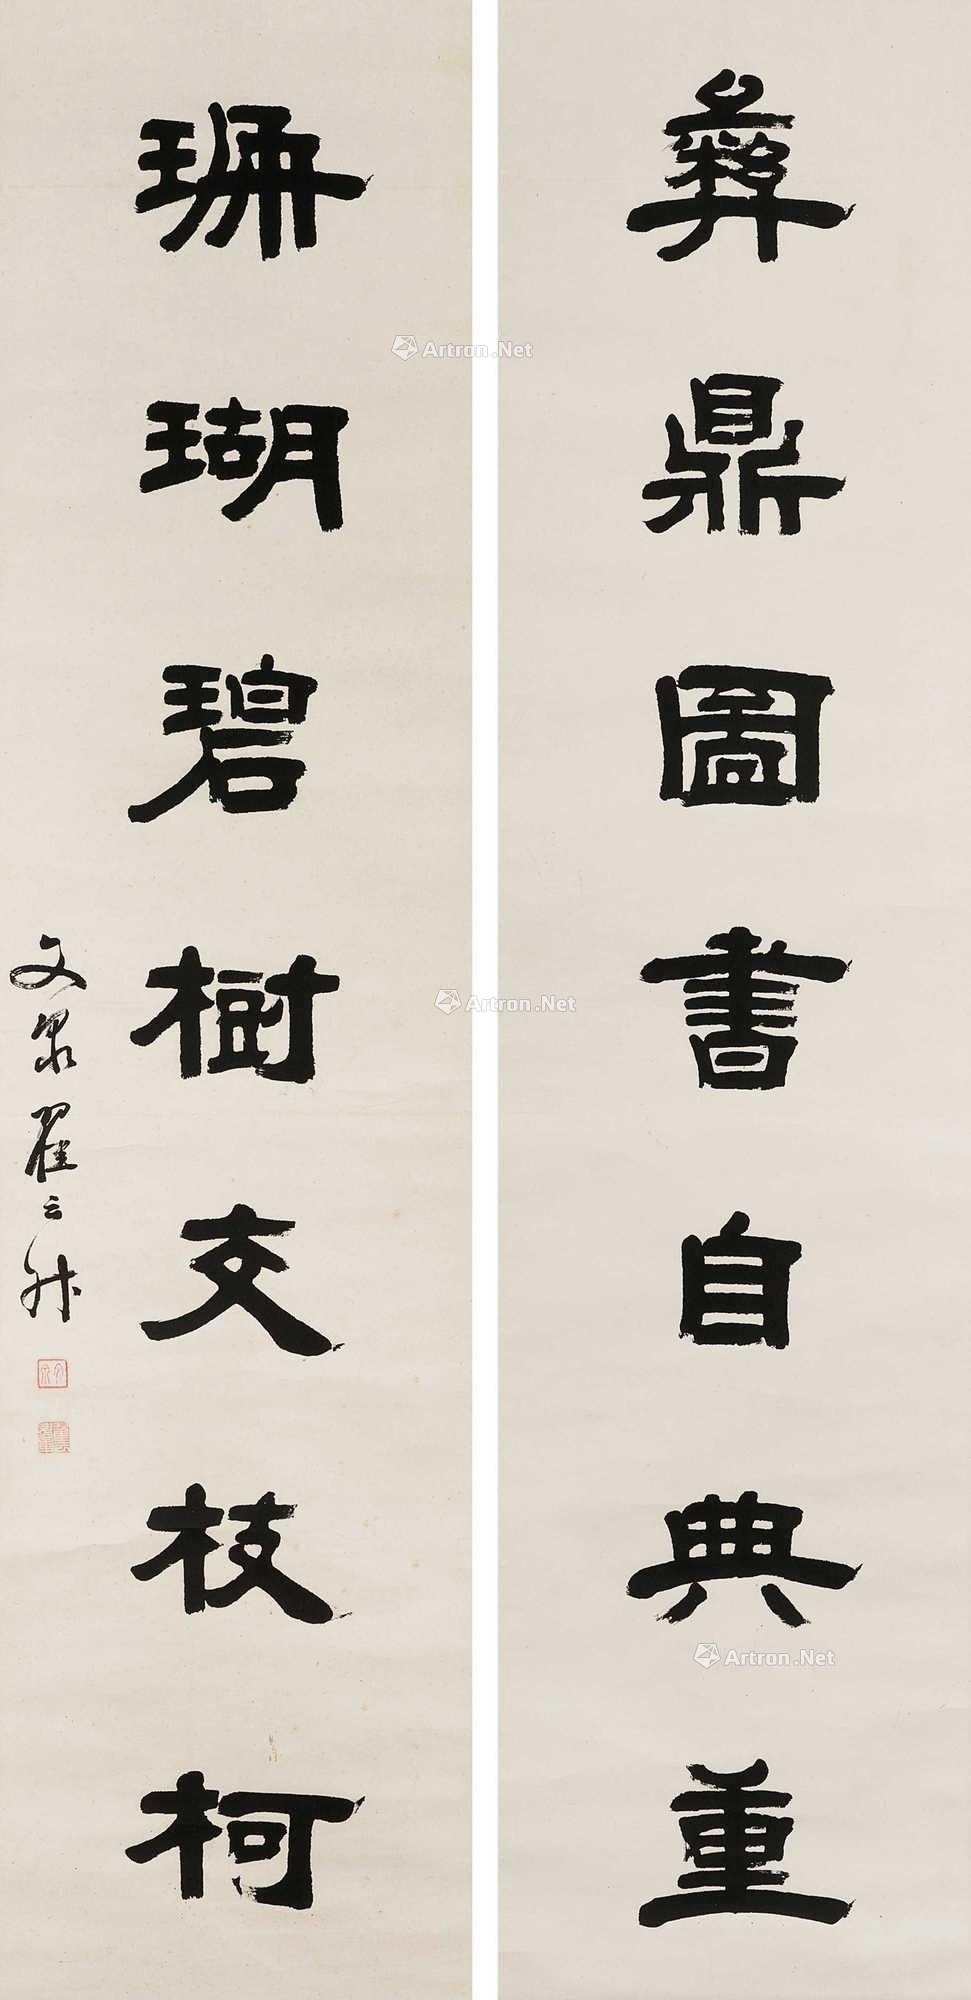 彝鼎圖書自典重
珊瑚碧樹交枝柯
文泉翟云升
Artron.Net
Artron.Net
Artron.Net